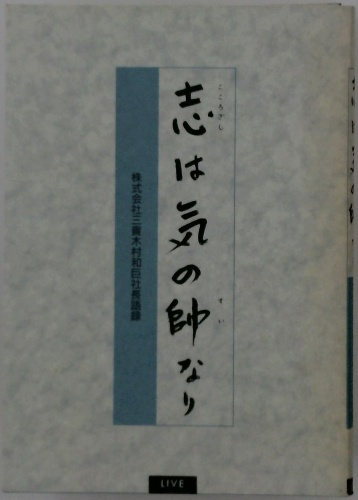 志は気の帥なり
こころざし
すい
株式会社三養木村和臣社長語録
LIVE